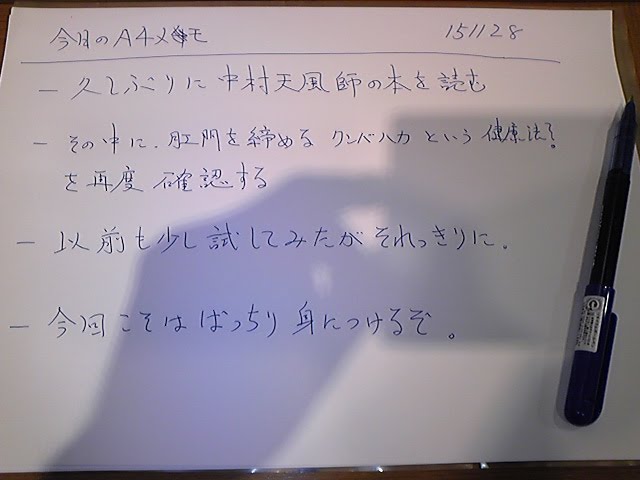 今日のA4メモ 151128
― 久しぶりに中村天風師の本を読む
― その中に、肛門を締める クンバハカ という 健康法?
を再度 確認する
― 以前も少し試してみたがそれっきりに。
― 今回こそはばっちり身につけるぞ。